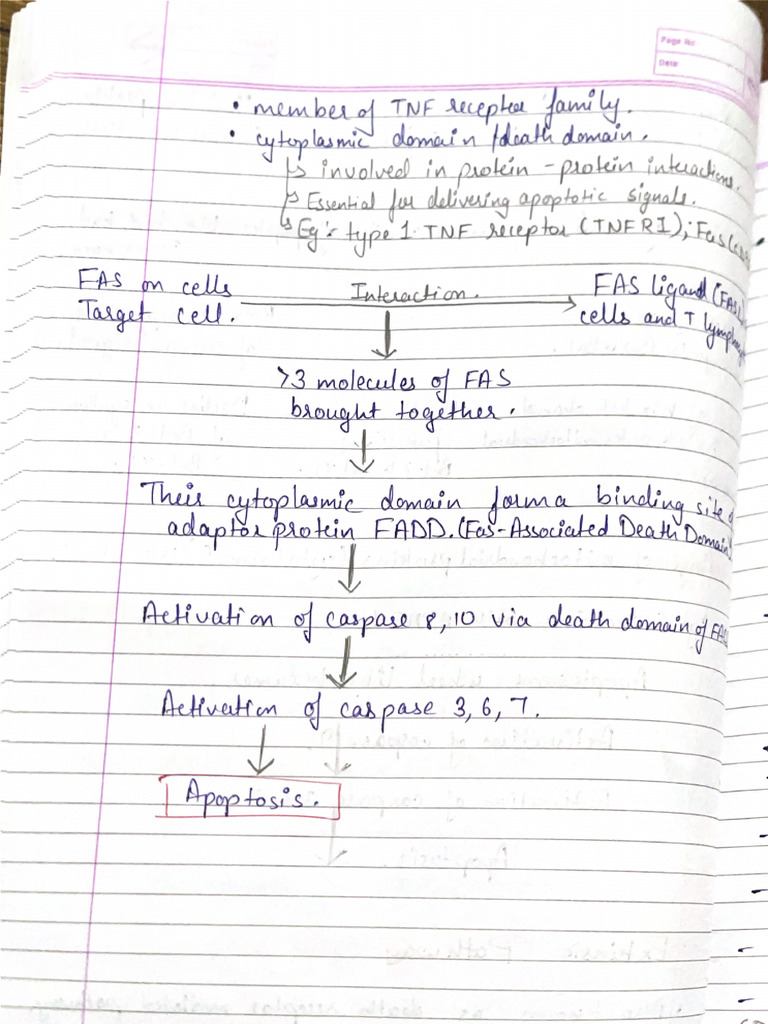 Page No
Date
• member of TNF receptor family.
• cytoplasmic domain /death domain.
↳ involved in protein - protein interactions.
↳ Essential for delivering apoptotic signals.
↳ Eg:- type 1 TNF receptor (TNFRI); Fas
FAS on cells
Target cell.
Interaction.
FAS ligand (FASL
cells and T
>3 molecules of FAS
brought together.
Their cytoplasmic domain forma binding site
adaptor protein FADD. (Fas-Associated Death Domain)
Activation of caspase 8, 10 via death domain of
Activation of caspase 3, 6, 7.
Apoptosis.